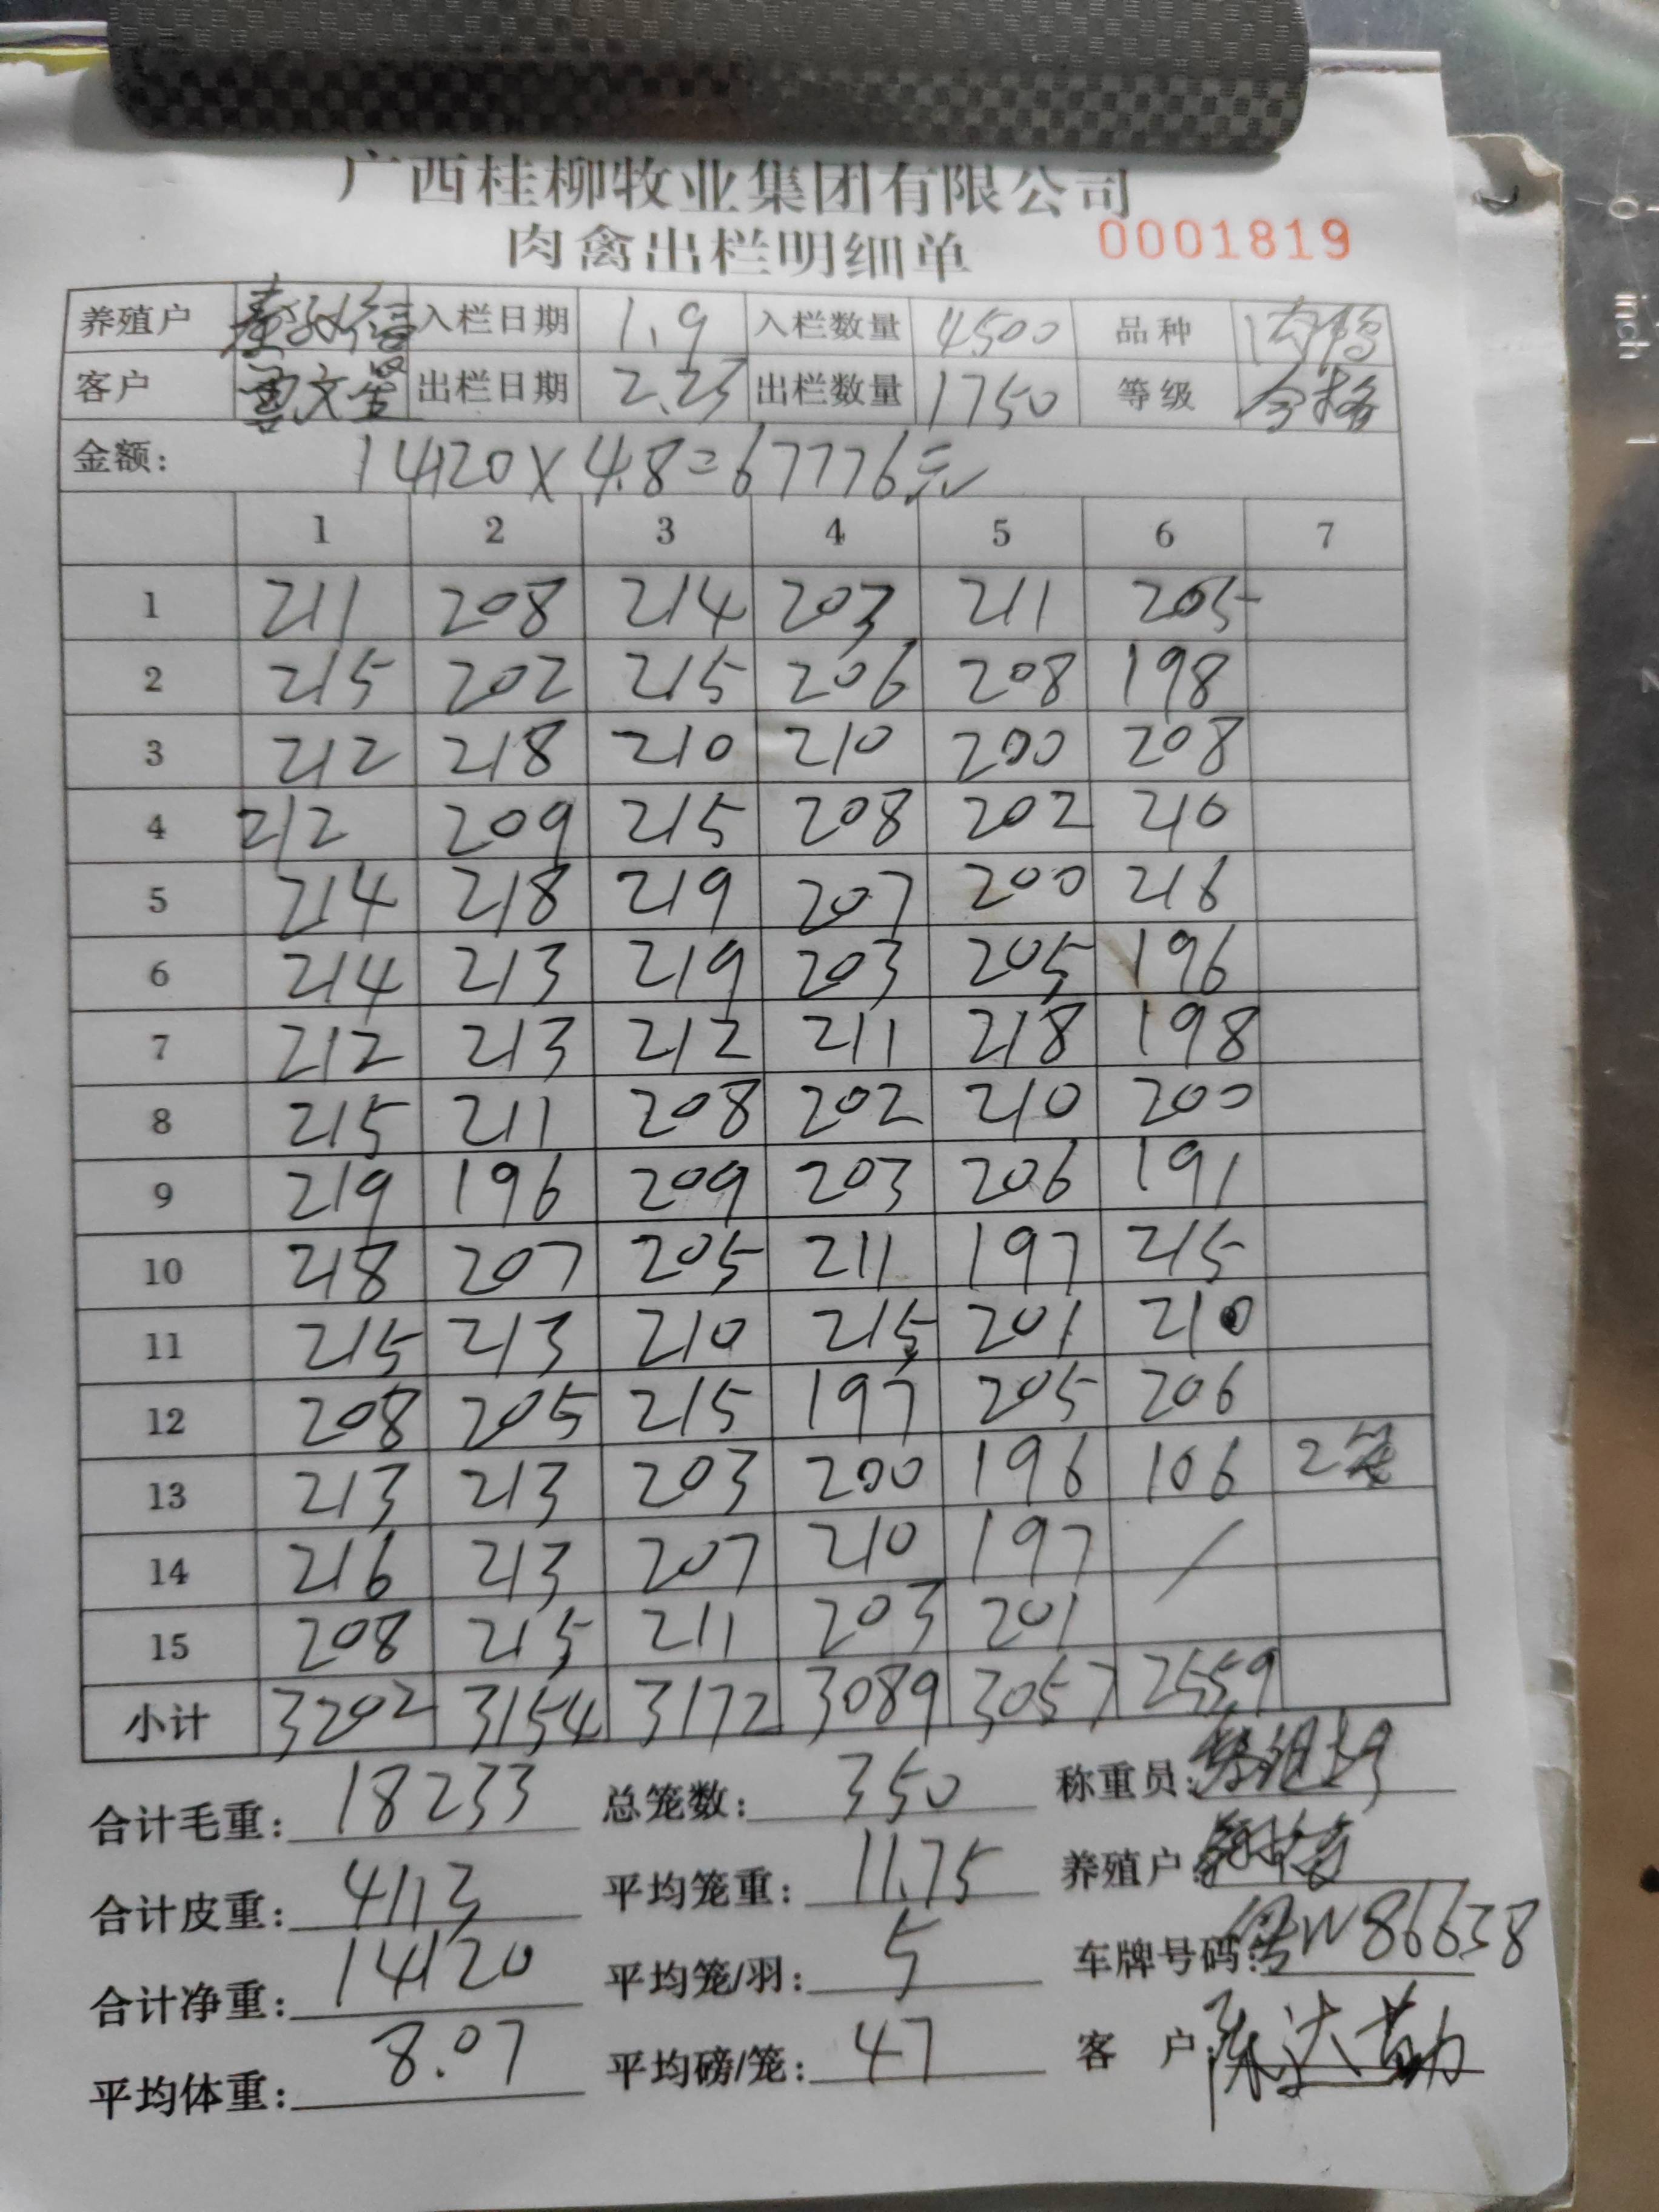 广西桂柳牧业集团有限公司
肉禽出栏明细单 0001819
养殖户 入栏日期 1.9 入栏数量 4500 品种 肉鸭
客户 出栏日期 2.25 出栏数量 1750 等级 合格
金额: 14120×4.8=67776元
1 2 3 4 5 6 7
1 211 208 214 203 211 205
2 215 202 215 206 208 198
3 212 218 210 210 200 208
4 212 209 215 208 202 210
5 214 218 219 207 200 216
6 214 213 219 203 205 196
7 212 213 212 211 218 198
8 215 211 208 202 210 200
9 219 196 209 203 206 191
10 218 207 205 211 197 215
11 215 213 210 215 201 210
12 208 205 215 197 205 206
13 213 213 203 200 196 106 2笼
14 216 213 207 210 197 /
15 208 215 211 203 201
小计 3202 3154 3172 3089 3057 2559
合计毛重: 18233 总笼数: 350 称重员:
合计皮重: 4113 平均笼重: 11.75 养殖户:
合计净重: 14120 平均笼/羽: 5 车牌号码: W86638
平均体重: 8.07 平均磅/笼: 47 客 户: 陈达勋
0 inch 1 2